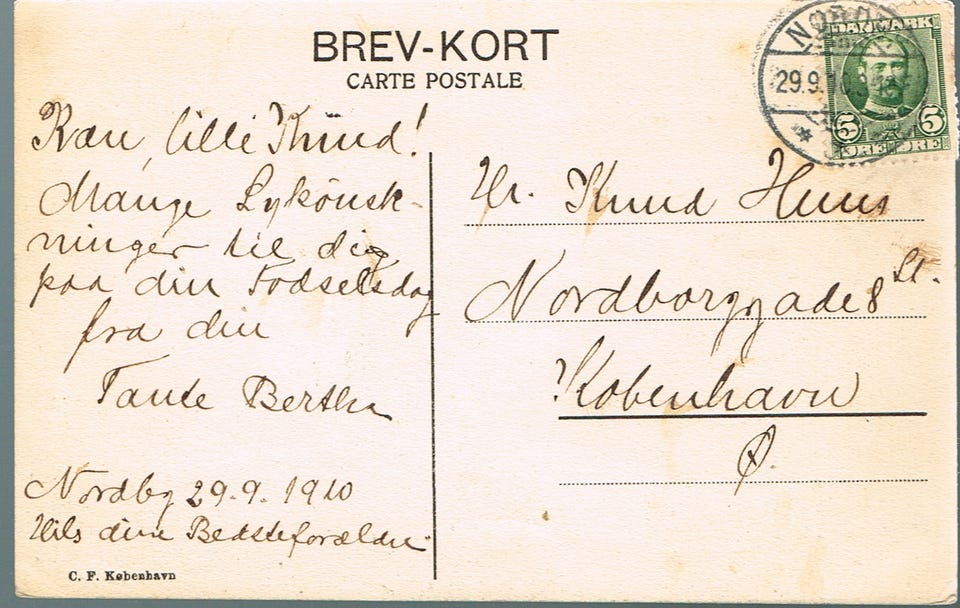 BREV-KORT
CARTE POSTALE
NORDBY
29.9.10
DANMARK
5 5
ØRE ØRE
Kære lille Knud!
Mange Lykönsk-
ninger til dig
paa din Födselsdag
fra din
Tante Bertha
Nordby 29.9.1910
Hils dine Bedsteforældre
Hr. Knud Huus
Nordborggade 8 St.
København
Ø.
C. F. København